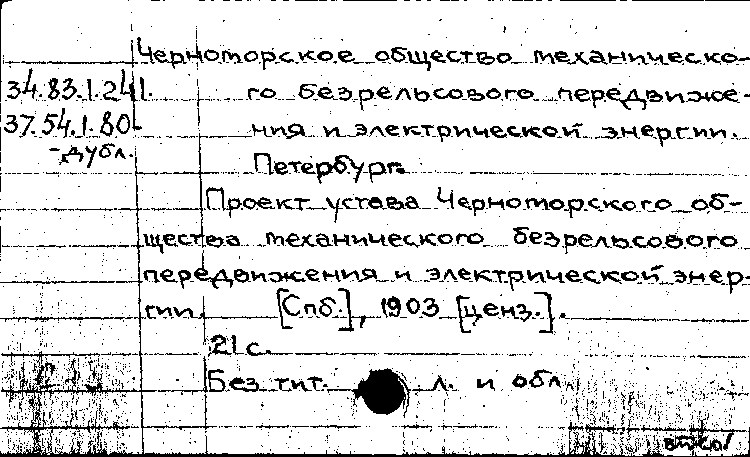 Черноморское общество механическо-
34.83.1.241. го безрельсового передвиже-
37.54.1.80- ния и электрической энергии.
-дубл. Петербург.
Проект устава Черноморского об-
щества механического безрельсового
передвижения и электрической энер-
гии. [Спб.], 1903 [ценз.].
21 с.
Без тит. л. и обл.